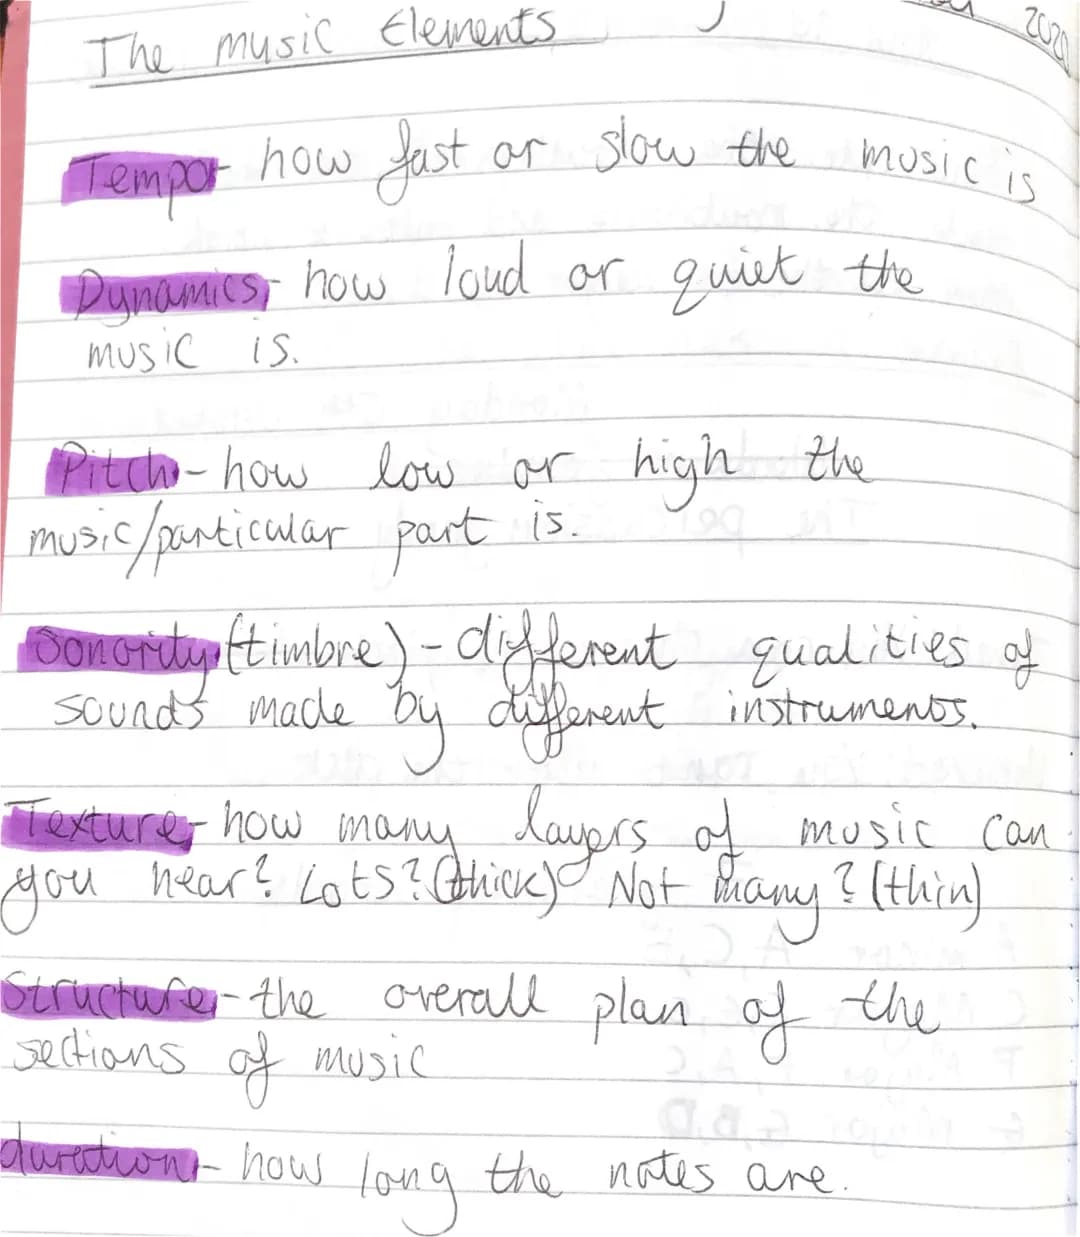 The music Elements
2020
Tempo - how fast or slow the music is
Dynamics - how loud or quiet the
music is.
Pitch - how low or high the
music/particular part is.
Sonority (timbre) - different qualities of
sounds made by different instruments.
Texture - how many layers of music can
you hear? Lots? (thick) Not many? (thin)
Structure - the overall plan of the
sections of music
duration - how long the notes are.